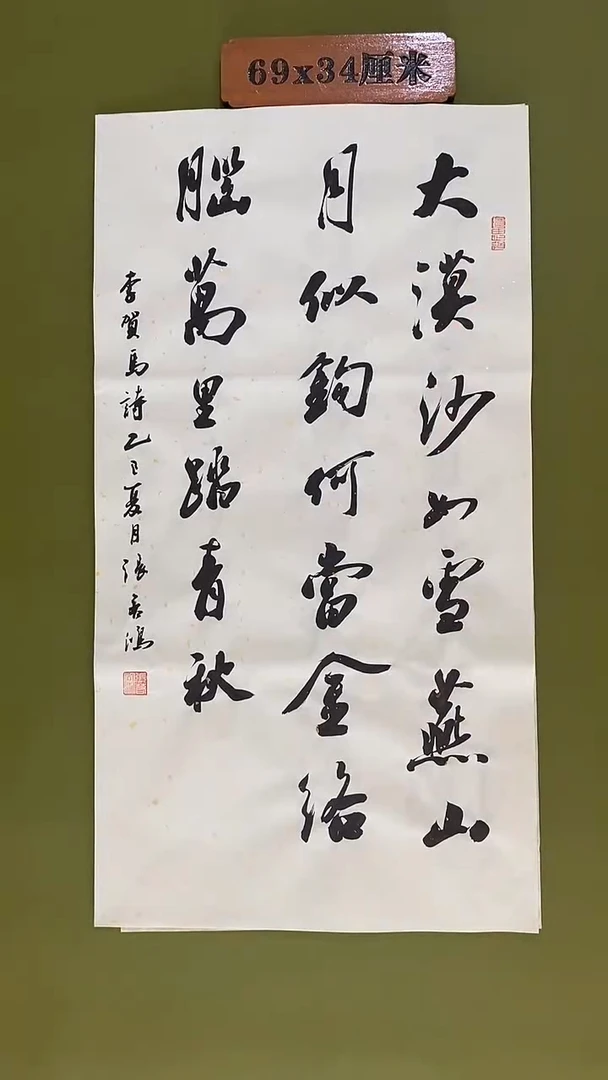 69x34厘米
大漠沙如雪燕山
月似鈎何當金絡
腦萬里踏青秋
李賀馬詩乙巳夏月張鴻